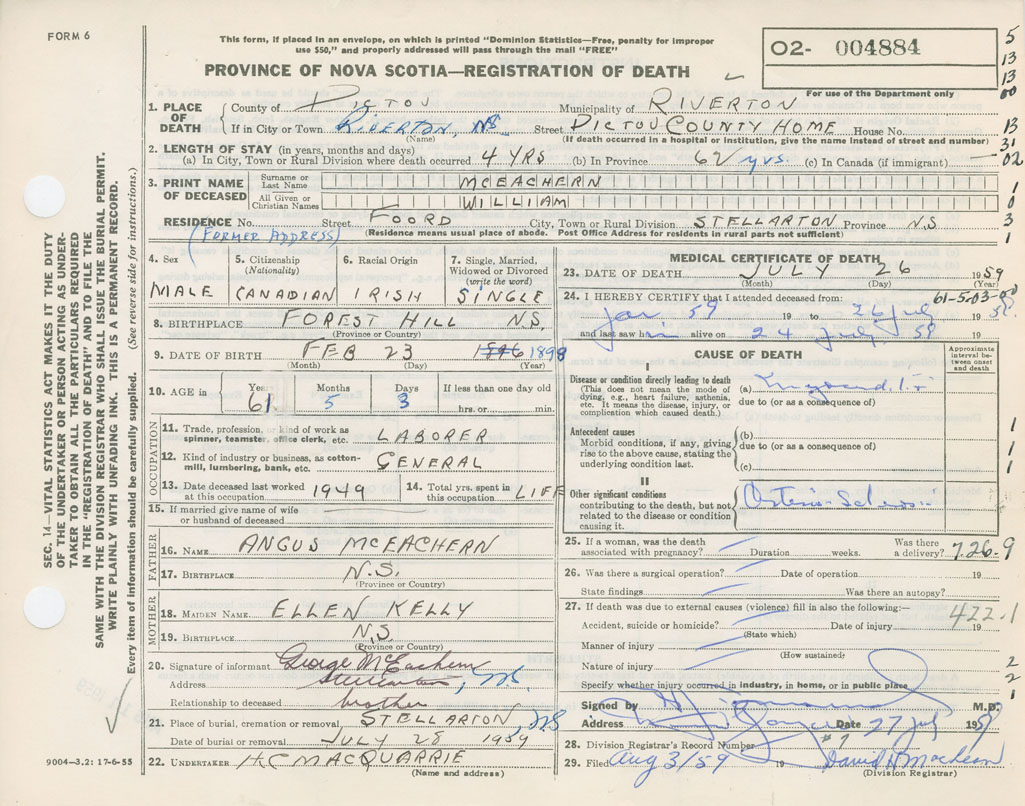 FORM 6
This form, if placed in an envelope, on which is printed "Dominion Statistics—Free, penalty for improper
use $50," and properly addressed will pass through the mail "FREE"
PROVINCE OF NOVA SCOTIA—REGISTRATION OF DEATH
02- 004884
For use of the Department only
5
13
13
00
13
31
02
1
0
3
1
1. PLACE OF DEATH
County of PICTOU Municipality of RIVERTON
If in City or Town RIVERTON, NS Street PICTOU COUNTY HOME House No.
(Name) (If death occurred in a hospital or institution, give the name instead of street and number)
2. LENGTH OF STAY (in years, months and days)
(a) In City, Town or Rural Division where death occurred 4 YRS (b) In Province 62 yrs. (c) In Canada (if immigrant) —
3. PRINT NAME OF DECEASED
Surname or Last Name MCEACHERN
All Given or Christian Names WILLIAM
RESIDENCE No. Street FOORD City, Town or Rural Division STELLARTON Province N.S
(FORMER ADDRESS) (Residence means usual place of abode. Post Office Address for residents in rural parts not sufficient)
4. Sex
MALE
5. Citizenship (Nationality)
CANADIAN
6. Racial Origin
IRISH
7. Single, Married, Widowed or Divorced (write the word)
SINGLE
8. BIRTHPLACE FOREST HILL N.S.
(Province or Country)
9. DATE OF BIRTH FEB 23 1898
(Month) (Day) (Year)
10. AGE in Years Months Days If less than one day old
61 5 3 hrs. or min.
OCCUPATION
11. Trade, profession, or kind of work as
spinner, teamster, office clerk, etc. LABORER
12. Kind of industry or business, as cotton-
mill, lumbering, bank, etc. GENERAL
13. Date deceased last worked
at this occupation 1949
14. Total yrs. spent in
this occupation LIFE
15. If married give name of wife
or husband of deceased
FATHER
16. NAME ANGUS MCEACHERN
17. BIRTHPLACE N.S.
(Province or Country)
MOTHER
18. MAIDEN NAME ELLEN KELLY
19. BIRTHPLACE N.S
(Province or Country)
20. Signature of informant George McEachern
Address Stellarton, N.S.
Relationship to deceased brother
21. Place of burial, cremation or removal STELLARTON, NS
Date of burial or removal JULY 28 1959
22. UNDERTAKER H.C MACQUARRIE
(Name and address)
MEDICAL CERTIFICATE OF DEATH
23. DATE OF DEATH JULY 26 1959
(Month) (Day) (Year)
24. I HEREBY CERTIFY that I attended deceased from: 61-5.03-00
Jan 59 19 to 26 July 19
and last saw h alive on 24 July 59 19
CAUSE OF DEATH
Approximate interval between onset and death
I
Disease or condition directly leading to death
(This does not mean the mode of
dying, e.g., heart failure, asthenia,
etc. It means the disease, injury, or
complication which caused death.)
(a)
due to (or as a consequence of)
Antecedent causes
Morbid conditions, if any, giving
rise to the above cause, stating the
underlying condition last.
(b)
due to (or as a consequence of)
(c)
1
1
1
II
Other significant conditions
contributing to the death, but not
related to the disease or condition
causing it.
25. If a woman, was the death
associated with pregnancy? Duration weeks. Was there
a delivery? 7.26-9
26. Was there a surgical operation? Date of operation 19
State findings Was there an autopsy?
27. If death was due to external causes (violence) fill in also the following:—
422.1
Accident, suicide or homicide? Date of injury 19
(State which)
Manner of injury
(How sustained)
Nature of injury
Specify whether injury occurred in industry, in home, or in public place
2
2
1
Signed by M.D.
Address Date 27 July 1959
28. Division Registrar's Record Number #9
29. Filed Aug 3/59 19
(Division Registrar)
SEC. 14—VITAL STATISTICS ACT MAKES IT THE DUTY
OF THE UNDERTAKER OR PERSON ACTING AS UNDER-
TAKER TO OBTAIN ALL THE PARTICULARS REQUIRED
IN THE "REGISTRATION OF DEATH" AND TO FILE THE
SAME WITH THE DIVISION REGISTRAR WHO SHALL ISSUE THE BURIAL PERMIT.
WRITE PLAINLY WITH UNFADING INK. THIS IS A PERMANENT RECORD.
Every item of information should be carefully supplied. (See reverse side for instructions.)
9004—3,2: 17-6-55